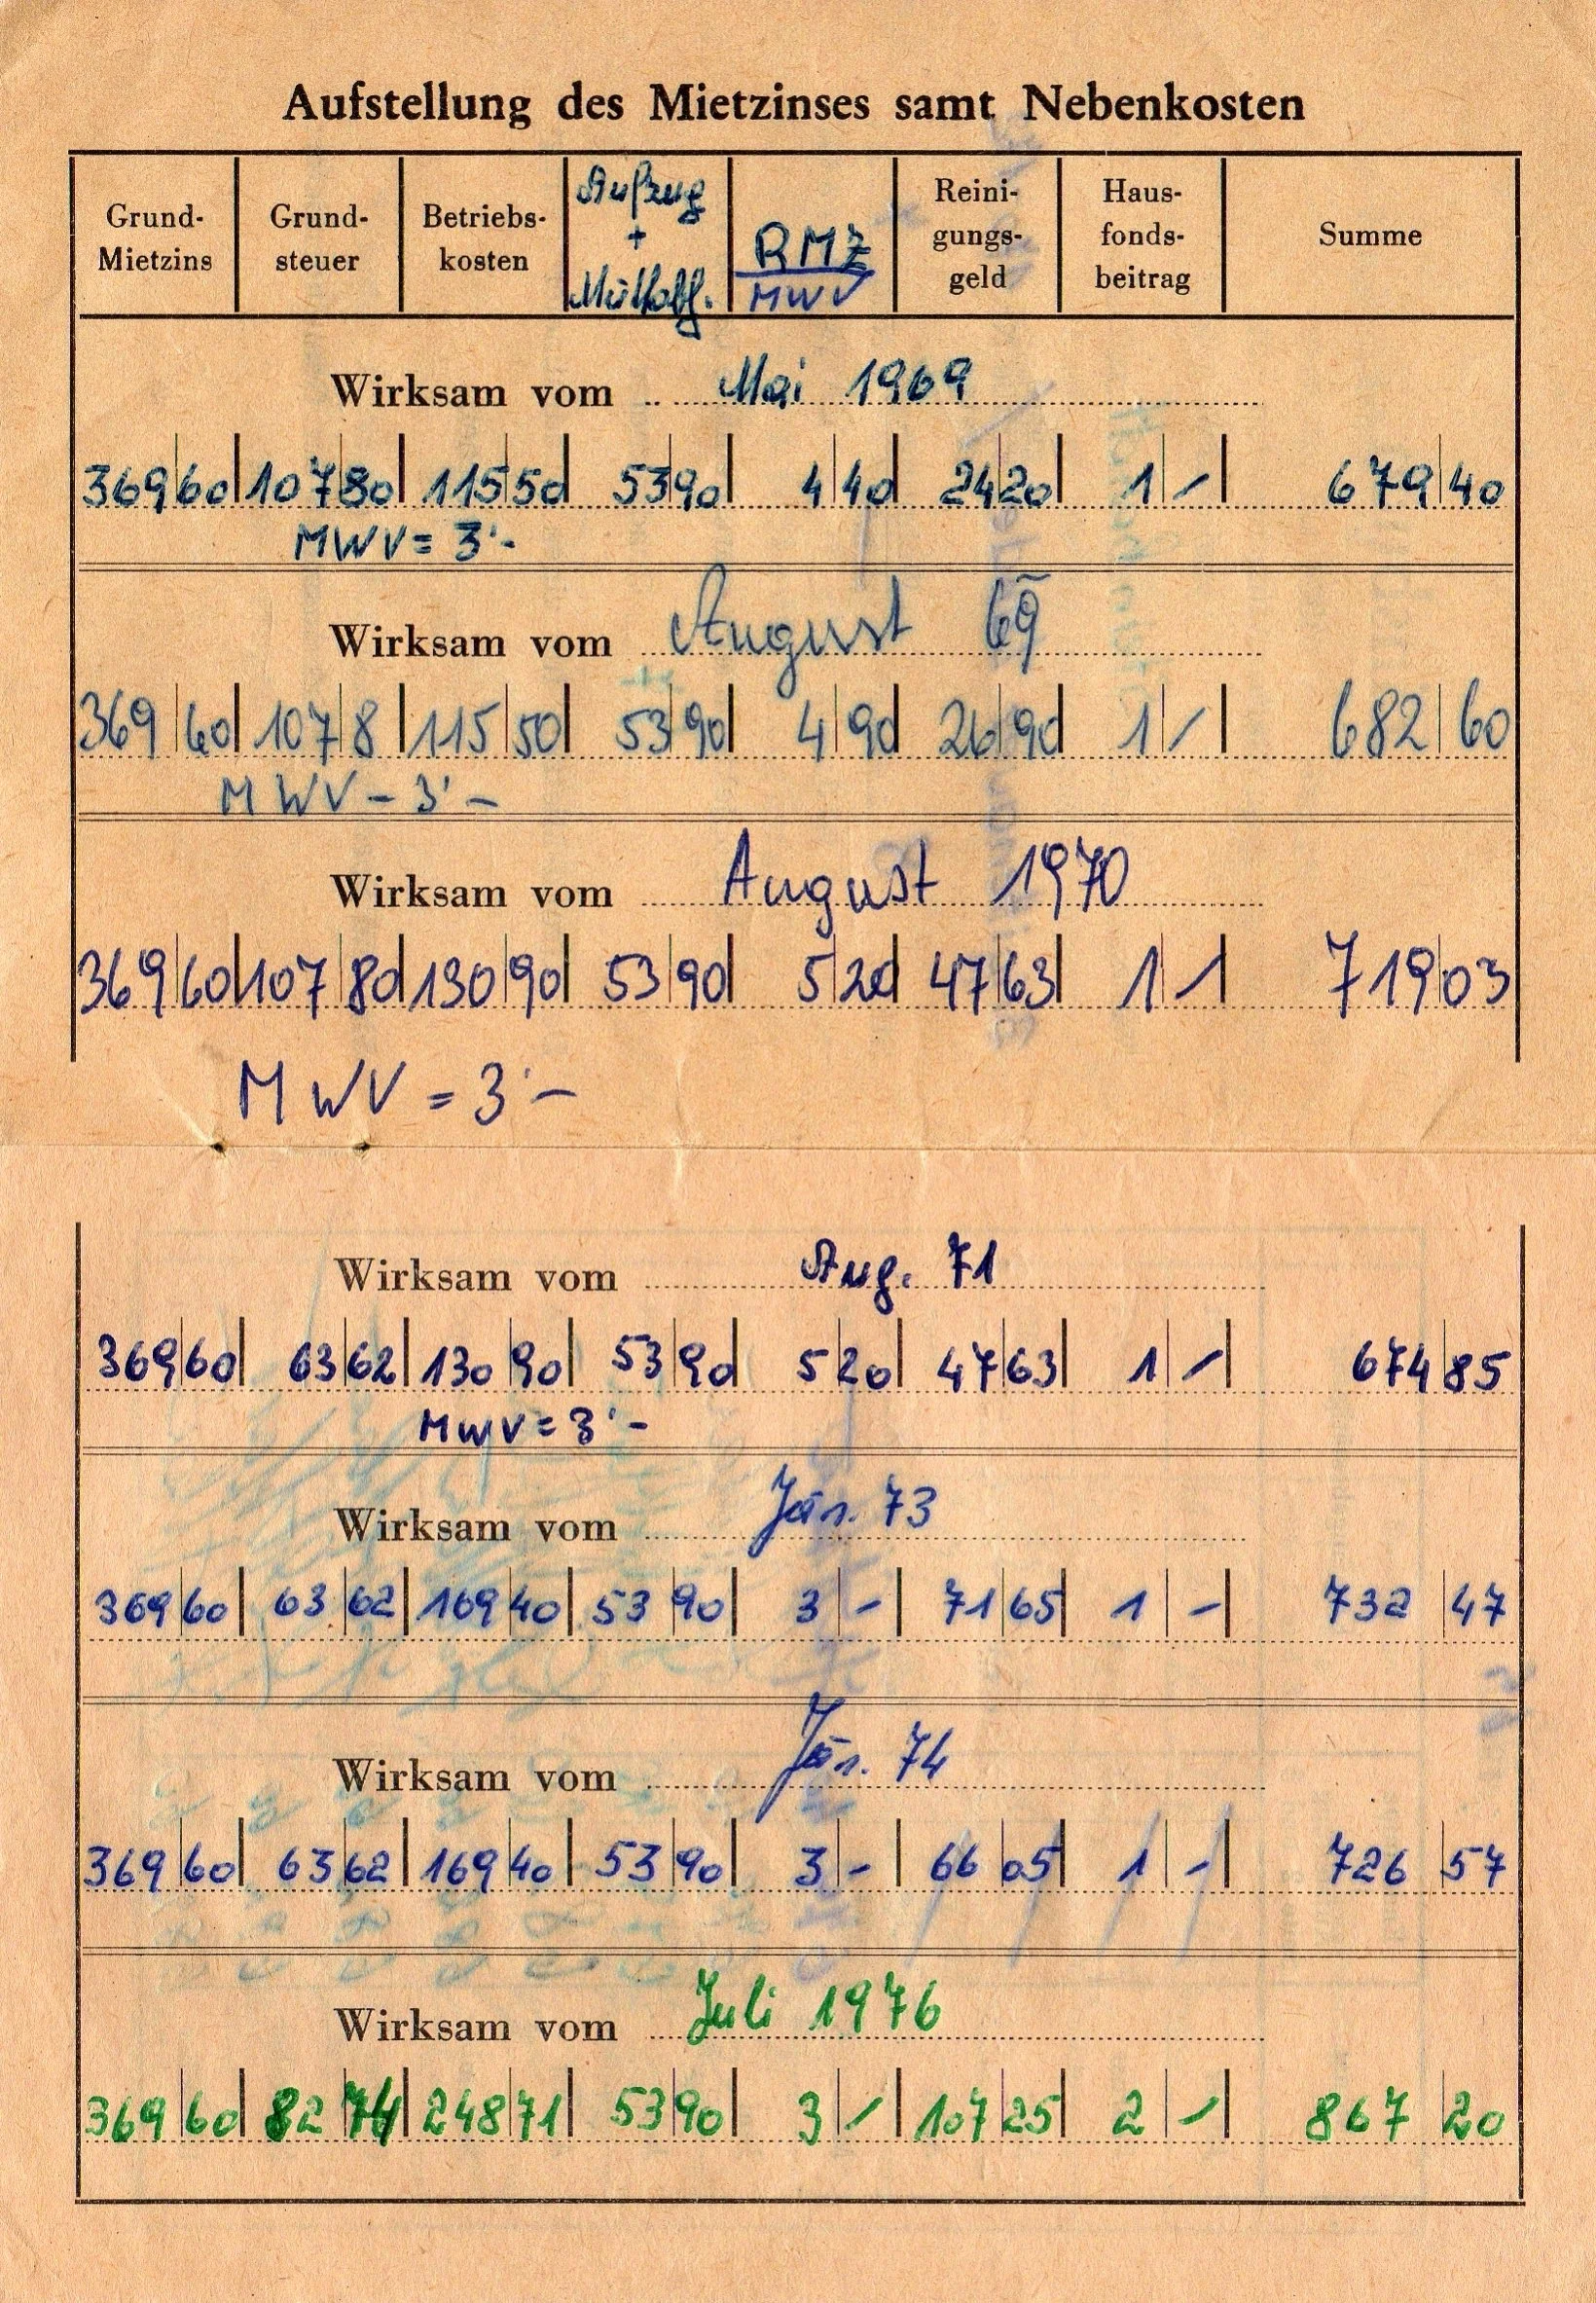 Aufstellung des Mietzinses samt Nebenkosten
Grund-
Mietzins
Grund-
steuer
Betriebs-
kosten
Aufzug
+
Müllabf.
RMZ
MWV
Reini-
gungs-
geld
Haus-
fonds-
beitrag
Summe
Wirksam vom Mai 1969
369 60 107 80 115 50 53 90 4 40 24 20 1 - 679 40
MWV = 3'-
Wirksam vom August 69
369 60 107 8 115 50 53 90 4 90 26 90 1 / 682 60
MWV - 3'-
Wirksam vom August 1970
369 60 107 80 130 90 53 90 5 20 47 63 1 / 719 03
MWV = 3'-
Wirksam vom Aug. 71
369 60 63 62 130 90 53 90 5 20 47 63 1 - 674 85
MWV = 3'-
Wirksam vom Jän. 73
369 60 63 62 169 40 53 90 3 - 71 65 1 - 732 47
Wirksam vom Jän. 74
369 60 63 62 169 40 53 90 3 - 66 05 1 - 726 57
Wirksam vom Juli 1976
369 60 82 74 248 71 53 90 3 - 107 25 2 - 867 20